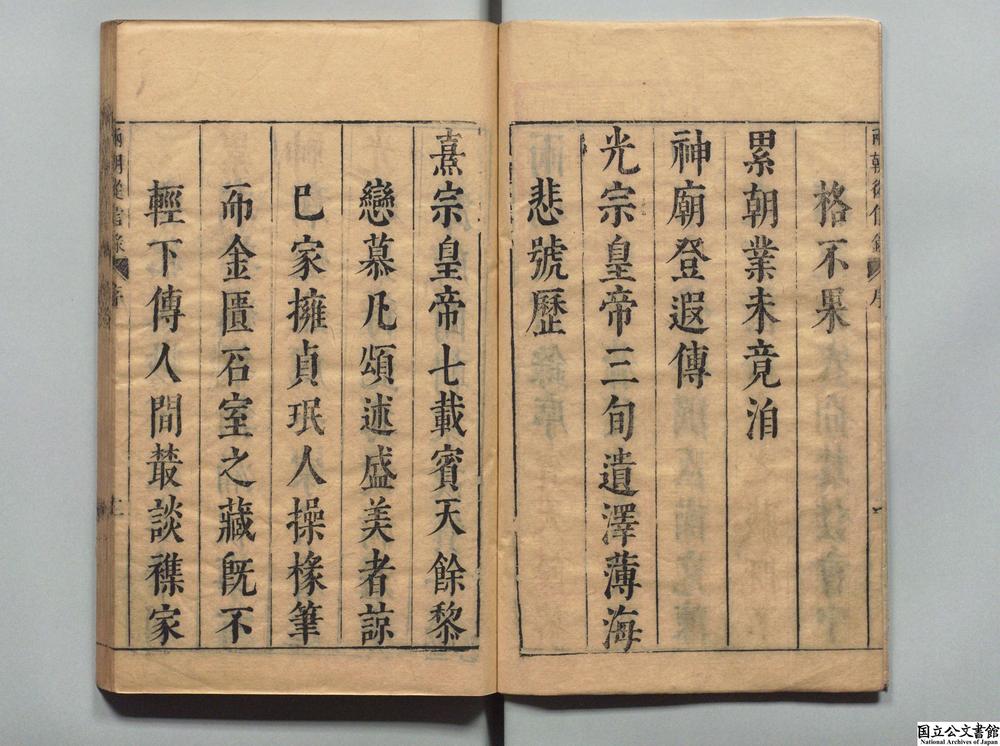 格不果
累朝業未竟洎
神廟登遐傳
光宗皇帝三旬遺澤薄海
悲號歷
熹宗皇帝七載賓天餘黎
戀慕凡頌述盛美者諒
已家擁貞珉人操椽筆
而金匱石室之藏旣不
輕下傳人間叢談襍家
兩朝從信錄
序
國立公文書館
National Archives of Japan